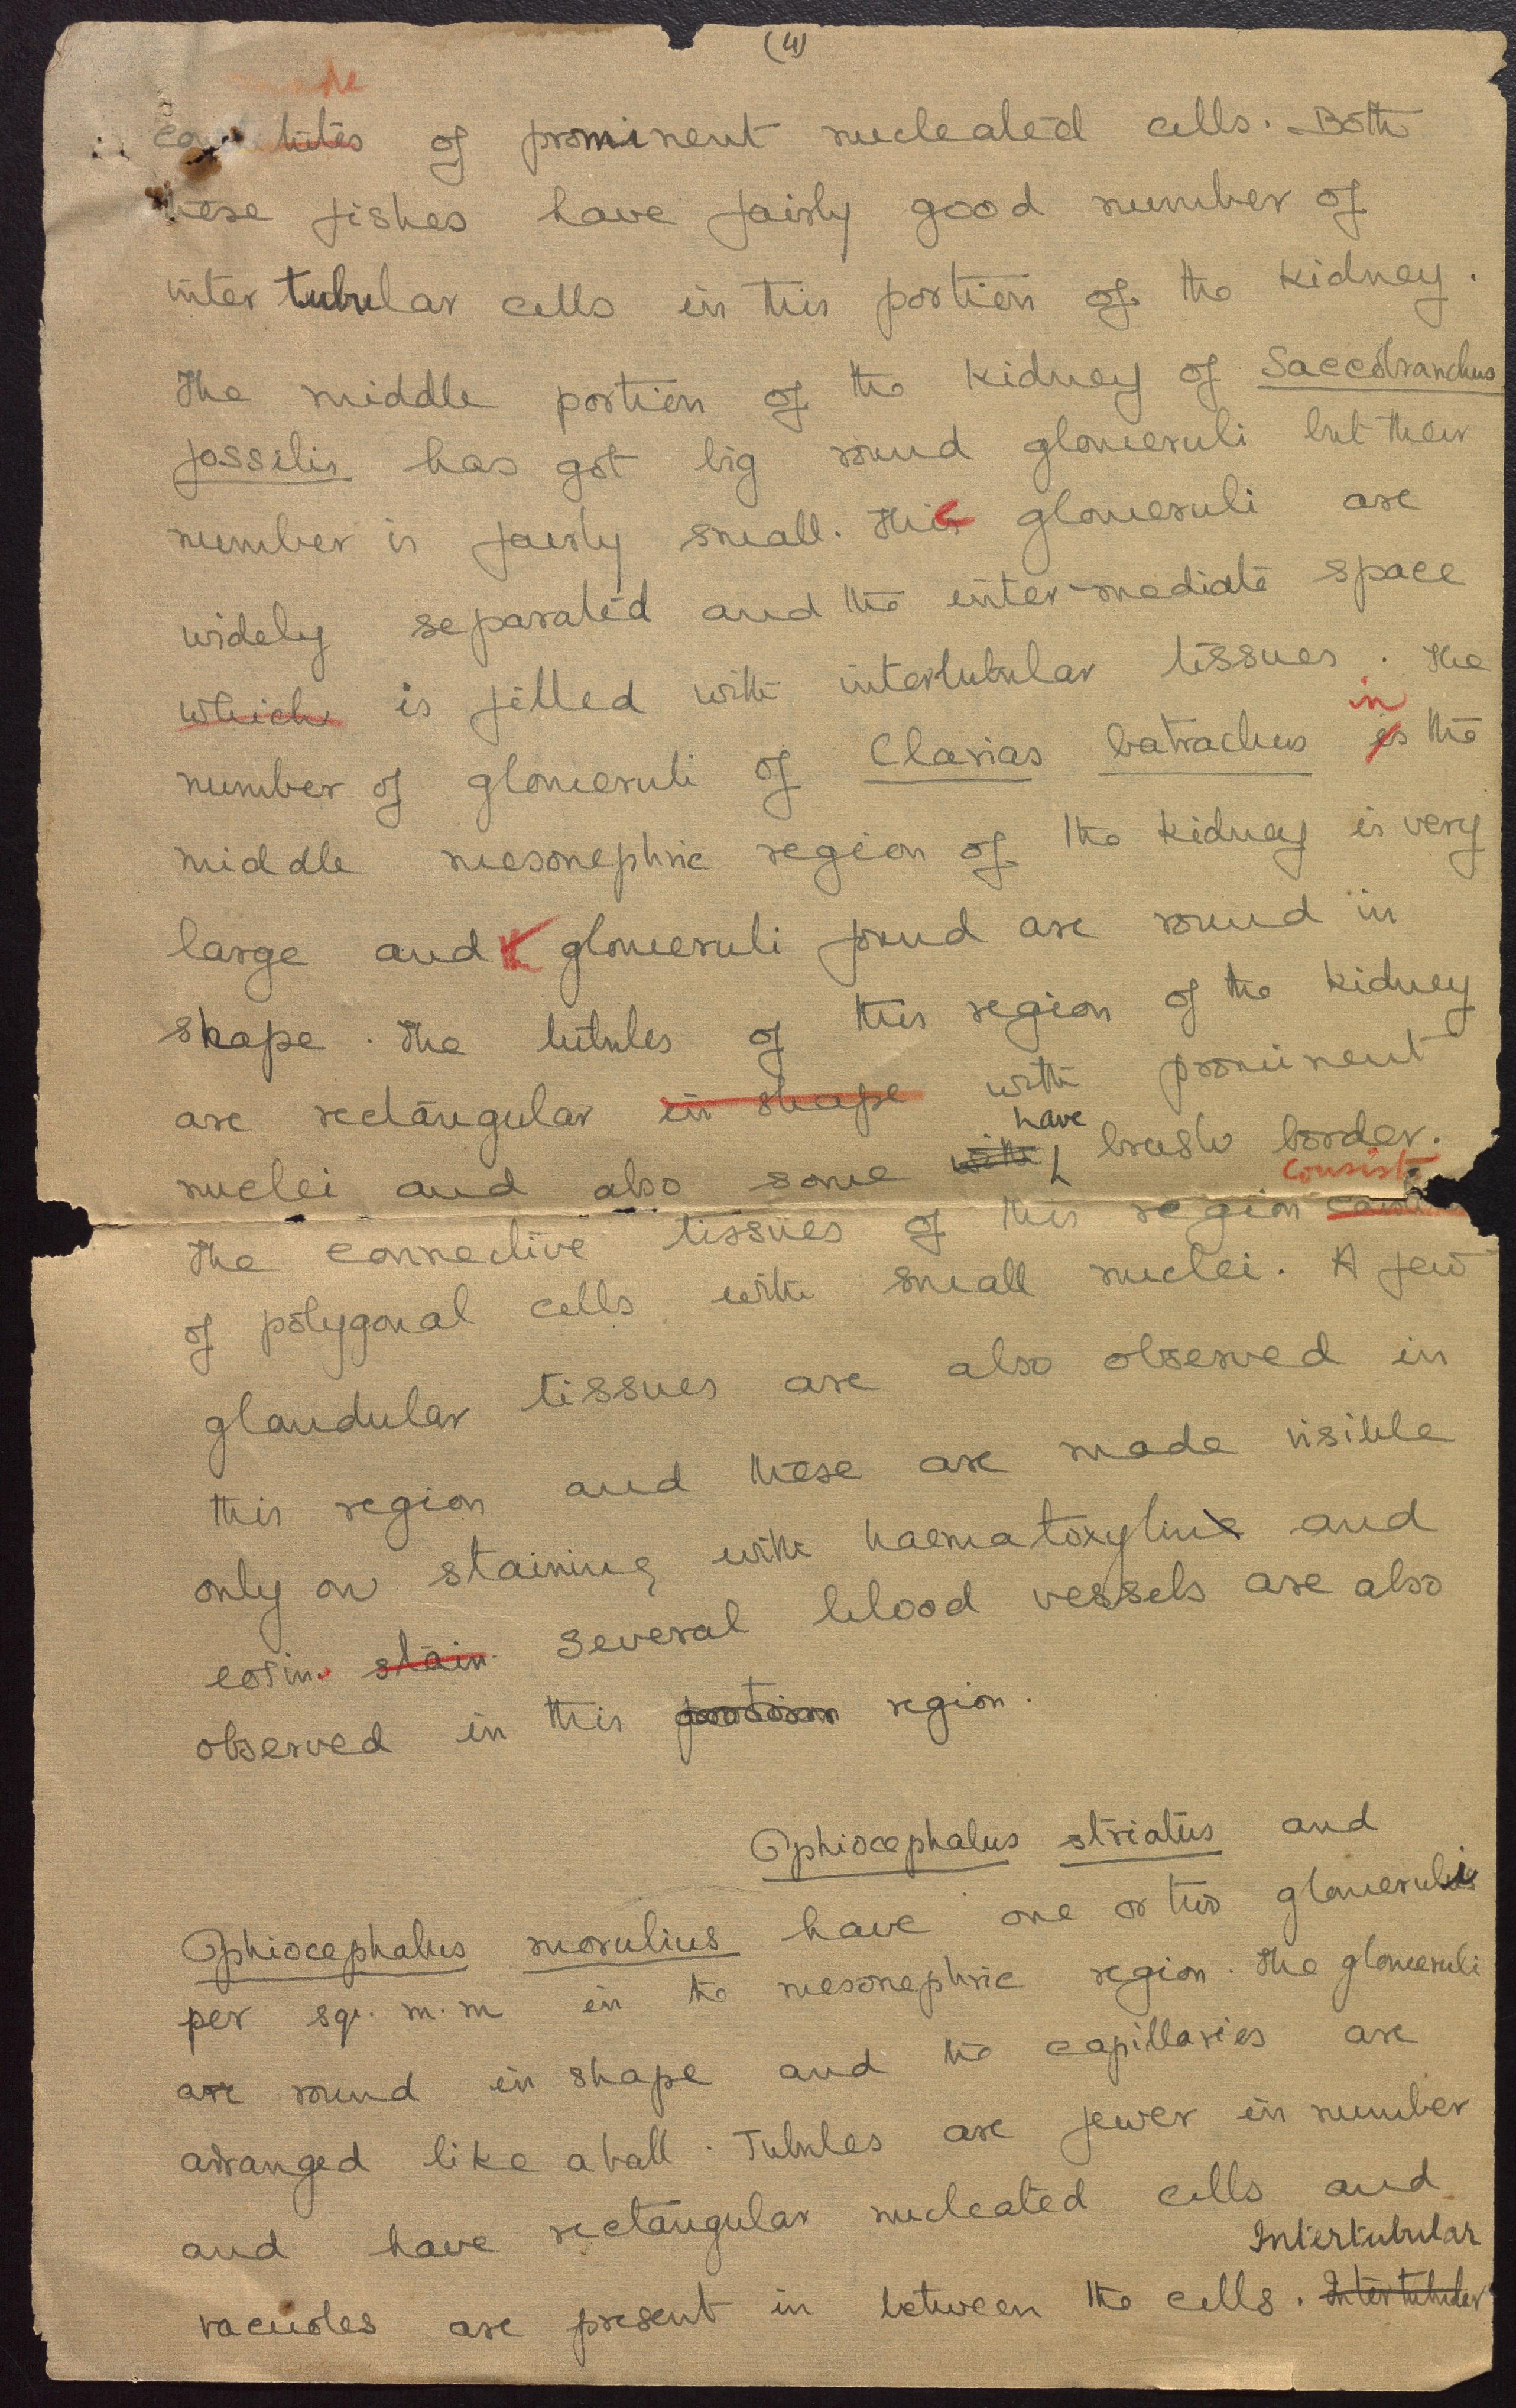 (4)
made
of prominent nucleated cells. Both
these fishes have fairly good number of
inter tubular cells in this portion of the kidney.
The middle portion of the kidney of Saccobranchus
fossilis has got big round glomeruli but their
number is fairly small. The glomeruli are
widely separated and the inter-mediate space
which is filled with intertubular tissues. The
in
number of glomeruli of Clarias batrachus is the
middle mesonephric region of the kidney is very
large and glomeruli found are round in
shape. The tubules of this region of the kidney
are rectangular in shape with prominent
have
nuclei and also some with brush border.
consist
The connective tissues of this region
of polygonal cells with small nuclei. A few
glandular tissues are also observed in
this region and these are made visible
only on staining with haematoxyline and
eosin. stain. Several blood vessels are also
observed in this portion region.
Ophiocephalus striatus and
Ophiocephalus morulius have one or two glomeruli
per sq. m.m in the mesonephric region. The glomeruli
are round in shape and the capillaries are
arranged like a ball. Tubules are fewer in number
and have rectangular nucleated cells and
Intertubular
vacuoles are present in between the cells. Intertubular